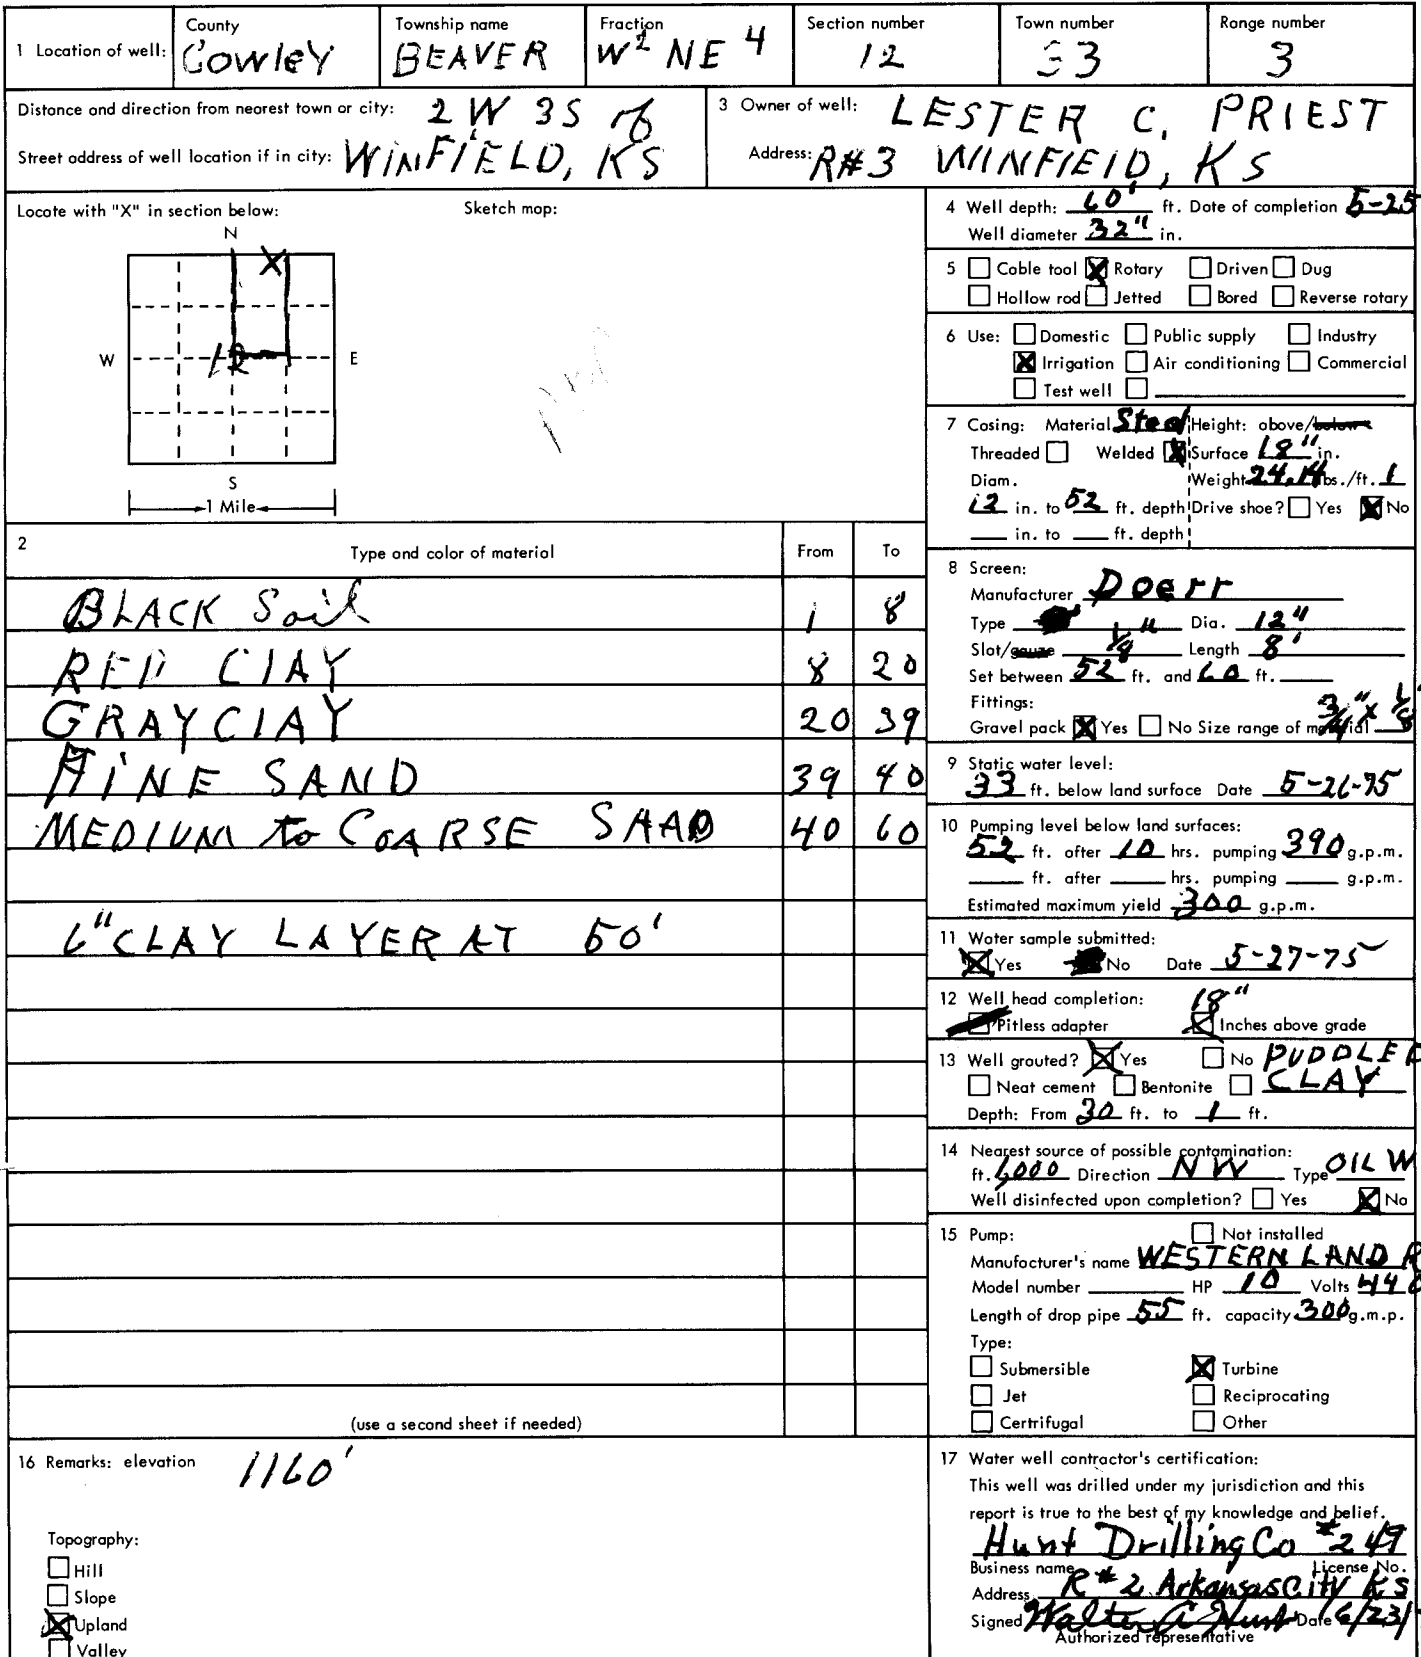 1 Location of well: County Township name Fraction Section number Town number Range number
Cowley BEAVER W2 NE 4 12 33 3
Distance and direction from nearest town or city: 2 W 3S of
Street address of well location if in city: WINFIELD, KS
3 Owner of well: LESTER C. PRIEST
Address: R#3 WINFIELD, KS
Locate with "X" in section below: Sketch map:
N
X
W 12 E
S
1 Mile
4 Well depth: 60' ft. Date of completion 5-25
Well diameter 32" in.
5 Cable tool X Rotary Driven Dug
Hollow rod Jetted Bored Reverse rotary
6 Use: Domestic Public supply Industry
X Irrigation Air conditioning Commercial
Test well
7 Casing: Material Steel Height: above/below
Threaded Welded X Surface 18" in.
Diam. Weight 24.14 lbs./ft. 1
12 in. to 52 ft. depth Drive shoe? Yes X No
in. to ft. depth
2 Type and color of material From To
BLACK Soil 1 8
RED CLAY 8 20
GRAY CLAY 20 39
FINE SAND 39 40
MEDIUM to COARSE SAND 40 60
6" CLAY LAYER AT 50'
(use a second sheet if needed)
8 Screen:
Manufacturer Doerr
Type Dia. 12"
Slot/gauze 1/8" Length 8'
Set between 52 ft. and 60 ft.
Fittings:
Gravel pack X Yes No Size range of material 3/4" x 1/8"
9 Static water level:
33 ft. below land surface Date 5-26-75
10 Pumping level below land surfaces:
52 ft. after 10 hrs. pumping 390 g.p.m.
ft. after hrs. pumping g.p.m.
Estimated maximum yield 300 g.p.m.
11 Water sample submitted:
X Yes No Date 5-27-75
12 Well head completion: 18"
Pitless adapter X Inches above grade
13 Well grouted? X Yes No PUDDLED
Neat cement Bentonite CLAY
Depth: From 30 ft. to 1 ft.
14 Nearest source of possible contamination:
ft. 6,000 Direction NW Type OIL W
Well disinfected upon completion? Yes X No
15 Pump: Not installed
Manufacturer's name WESTERN LAND R
Model number HP 10 Volts 440
Length of drop pipe 55 ft. capacity 300 g.m.p.
Type:
Submersible X Turbine
Jet Reciprocating
Certrifugal Other
16 Remarks: elevation 1160'
Topography:
Hill
Slope
X Upland
Valley
17 Water well contractor's certification:
This well was drilled under my jurisdiction and this
report is true to the best of my knowledge and belief.
Hunt Drilling Co #249
Business name License No.
Address R#2 Arkansas City Ks
Signed Walter A Hunt Date 6/23/
Authorized representative